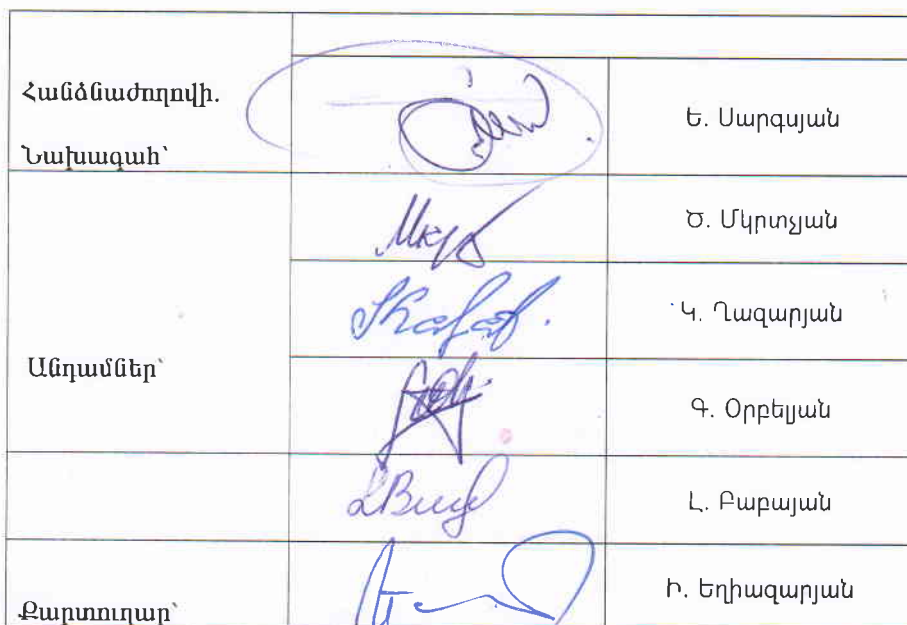 Հանձնաժողովի.
Նախագահ՝
Ե. Սարգսյան
Ծ. Մկրտչյան
Կ. Ղազարյան
Անդամներ՝
Գ. Օրբելյան
Լ. Բաբայան
Քարտուղար՝
Ի. Եղիազարյան